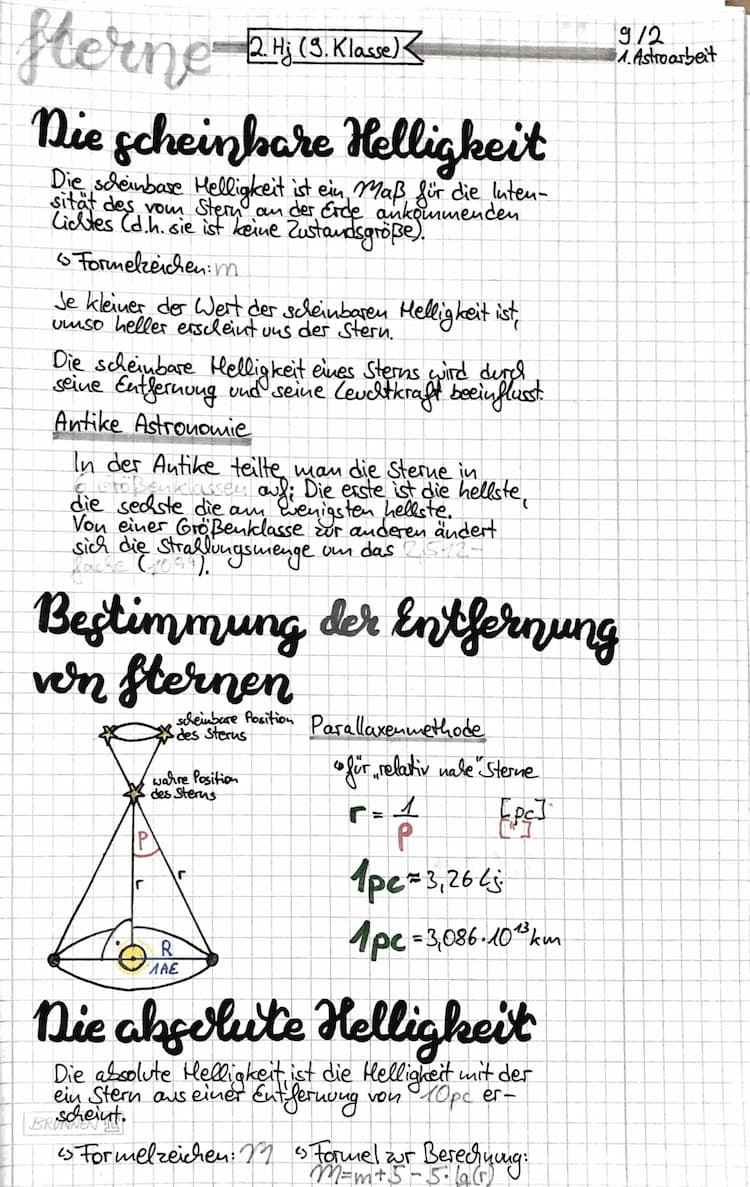 Sterne
2. Hj (9. Klasse)
9/2
1. Astroarbeit
Die scheinbare Helligkeit
Die scheinbare Helligkeit ist ein Maß für die Inten-
sität des vom Stern an der Erde ankommenden
Lichtes (d.h. sie ist keine Zustandsgröße).
↳ Formelzeichen: m
Je kleiner der Wert der scheinbaren Helligkeit ist,
umso heller erscheint uns der Stern.
Die scheinbare Helligkeit eines Sterns wird durch
seine Entfernung und seine Leuchtkraft beeinflusst.
Antike Astronomie
In der Antike teilte man die Sterne in
6 Größenklassen auf: Die erste ist die hellste,
die sechste die am wenigsten hellste.
Von einer Größenklasse zur anderen ändert
sich die Strahlungsmenge um das 2,512-
fache (10^0,4).
Bestimmung der Entfernung
von Sternen
scheinbare Position
des Sterns
wahre Position
des Sterns
P
r
r
R
1AE
Parallaxenmethode
↳ für „relativ nahe" Sterne
r = 1/P [pc] ["]
1pc ≈ 3,26 Lj
1pc = 3,086 · 10¹³ km
Die absolute Helligkeit
Die absolute Helligkeit ist die Helligkeit mit der
ein Stern aus einer Entfernung von 10pc er-
scheint.
BRUNNEN
↳ Formelzeichen: M ↳ Formel zur Berechnung:
M = m + 5 - 5 · lg(r)